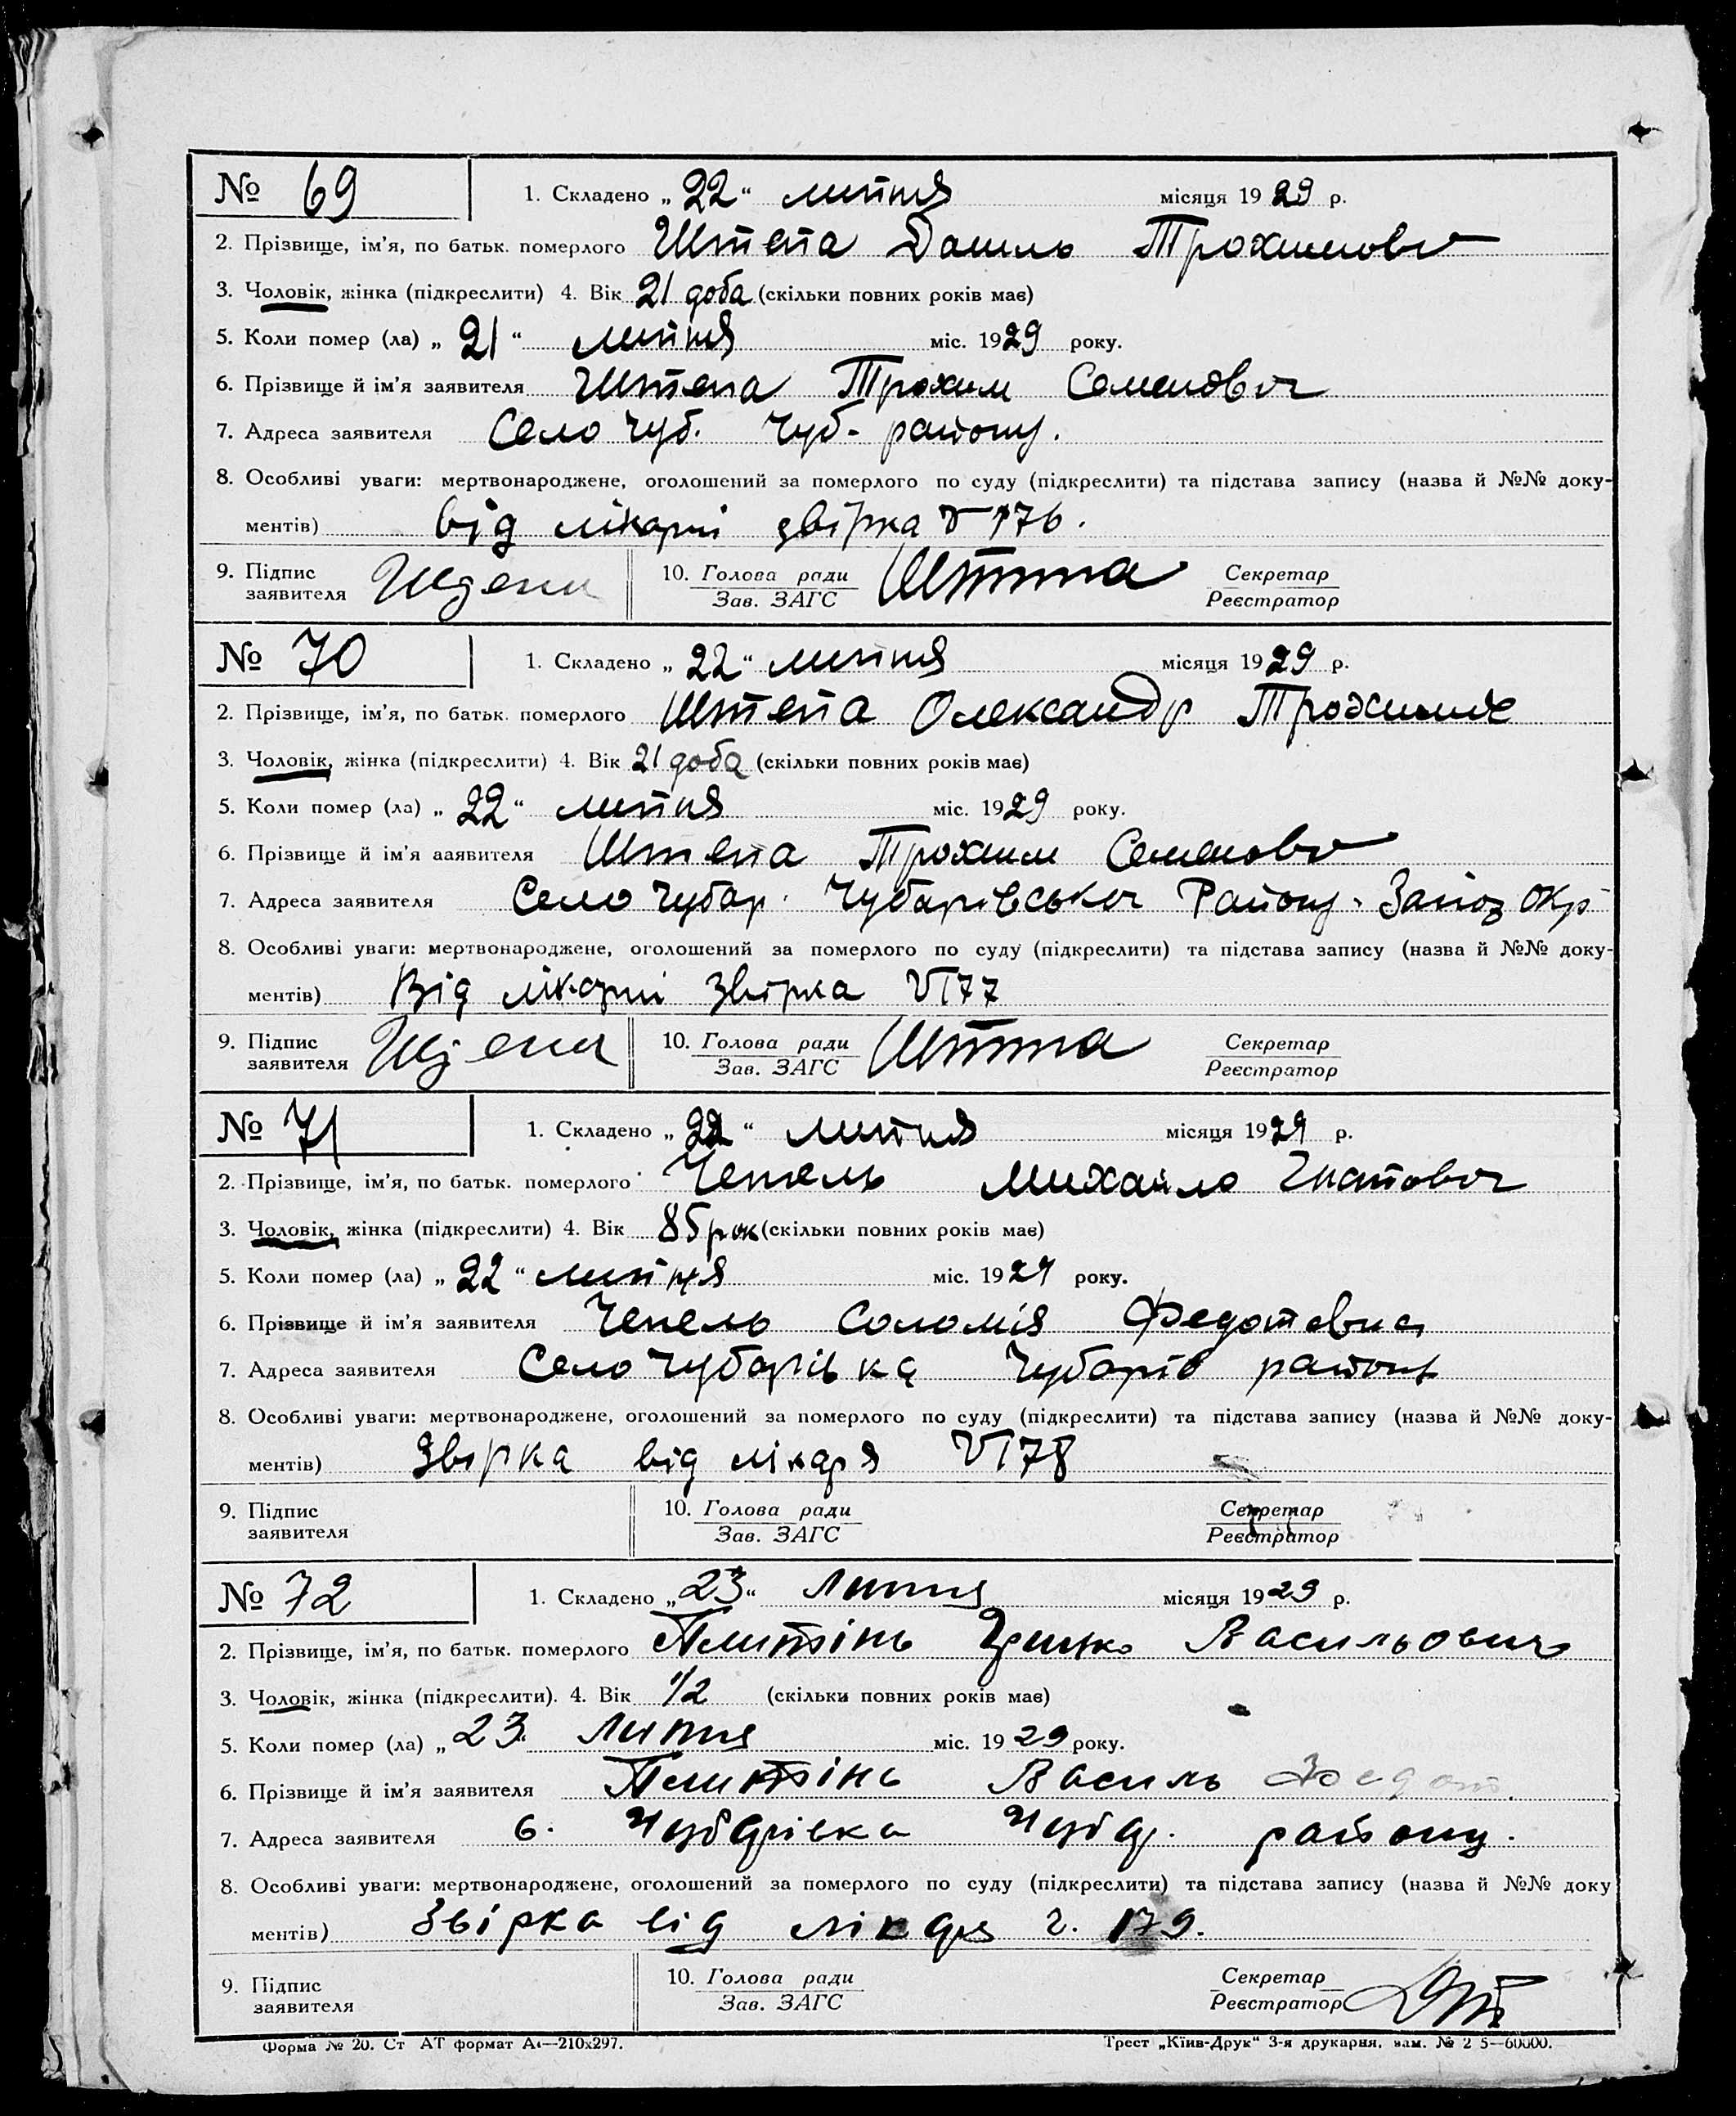 № 69 1. Складено „22“ липня місяця 1929 р.
2. Прізвище, ім’я, по батьк. померлого Штепа Данило Трохимович
3. Чоловік, жінка (підкреслити) 4. Вік 21 доба (скільки повних років має)
5. Коли помер (ла) „21“ липня міс. 1929 року.
6. Прізвище й ім’я заявителя Штепа Трохим Семенович
7. Адреса заявителя Село Чуб. Чуб- району.
8. Особливі уваги: мертвонароджене, оголошений за померлого по суду (підкреслити) та підстава запису (назва й №№ доку-
ментів) від лікарні звірка 176.
9. Підпис заявителя 10. Голова ради Зав. ЗАГС Штепа Секретар Реєстратор
№ 70 1. Складено „22“ липня місяця 1929 р.
2. Прізвище, ім’я, по батьк. померлого Штепа Олександр
3. Чоловік, жінка (підкреслити) 4. Вік 21 доба (скільки повних років має)
5. Коли помер (ла) „22“ липня міс. 1929 року.
6. Прізвище й ім’я заявителя Штепа Трохим Семенович
7. Адреса заявителя Село Чубар. Чубарівськог Району. Запоз Окр
8. Особливі уваги: мертвонароджене, оголошений за померлого по суду (підкреслити) та підстава запису (назва й №№ доку-
ментів) Від лікарні Звірка 177
9. Підпис заявителя 10. Голова ради Зав. ЗАГС Штепа Секретар Реєстратор
№ 71 1. Складено „22“ липня місяця 1929 р.
2. Прізвище, ім’я, по батьк. померлого Чепель Михайло Гнатович
3. Чоловік, жінка (підкреслити) 4. Вік 85 рок (скільки повних років має)
5. Коли помер (ла) „22“ липня міс. 1929 року.
6. Прізвище й ім’я заявителя Чепель Соломія Федотовна
7. Адреса заявителя Село Чубарівка Чубарів району
8. Особливі уваги: мертвонароджене, оголошений за померлого по суду (підкреслити) та підстава запису (назва й №№ доку-
ментів) Звірка від лікаря 178
9. Підпис заявителя 10. Голова ради Зав. ЗАГС Секретар Реєстратор
№ 72 1. Складено „23“ Липня місяця 1929 р.
2. Прізвище, ім’я, по батьк. померлого Грицько Васильович
3. Чоловік, жінка (підкреслити). 4. Вік 1/2 (скільки повних років має)
5. Коли помер (ла) „23. Липня міс. 1929 року.
6. Прізвище й ім’я заявителя Василь Федот.
7. Адреса заявителя с. Чубарівка Чубар. району.
8. Особливі уваги: мертвонароджене, оголошений за померлого по суду (підкреслити) та підстава запису (назва й №№ доку
ментів) Звірка від лікаря ч. 179.
9. Підпис заявителя 10. Голова ради Зав. ЗАГС Секретар Реєстратор
Форма № 20. Ст АТ формат А4—210х297. Трест „Київ-Друк“ 3-я друкарня, зам. № 2 5—60000.